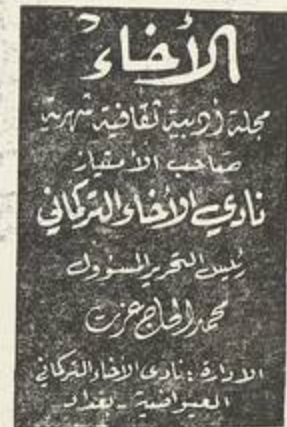 الأخاء
مجلة أدبية ثقافية شهرية
صاحب الأمتياز
نادي الأخاء التركماني
رئيس التحرير المسؤول
محمد الحاج عزت
الادارة : نادي الأخاء التركماني
العيواضية - بغداد